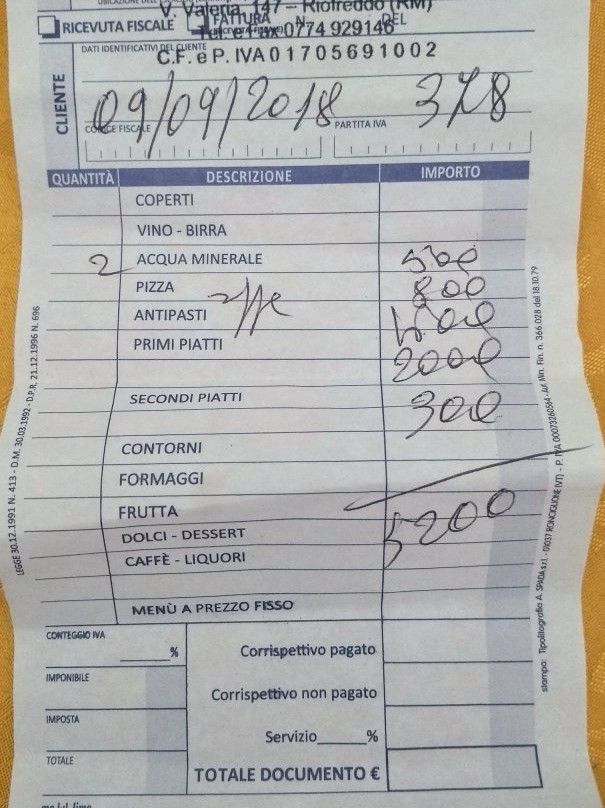 V. Valeria, 147 - Riofreddo (RM)
RICEVUTA FISCALE FATTURA N. DEL
Tel. e fax 0774 929146
DATI IDENTIFICATIVI DEL CLIENTE
C.F. e P. IVA 01705691002
CLIENTE
09/09/2018 378
CODICE FISCALE PARTITA IVA
QUANTITÀ DESCRIZIONE IMPORTO
COPERTI
VINO - BIRRA
2 ACQUA MINERALE 500
PIZZA 800
ANTIPASTI
PRIMI PIATTI 2000
SECONDI PIATTI 300
CONTORNI
FORMAGGI
FRUTTA
DOLCI - DESSERT 5200
CAFFÈ - LIQUORI
MENÙ A PREZZO FISSO
CONTEGGIO IVA
% Corrispettivo pagato
IMPONIBILE
Corrispettivo non pagato
IMPOSTA
Servizio %
TOTALE
TOTALE DOCUMENTO €
LEGGE 30.12.1991 N. 413 - D.M. 30.03.1992 - D.P.R. 21.12.1996 N. 696
stampa: Tipolitografia A. SPADA s.r.l. - 01037 RONCIGLIONE (VT) - P. IVA 00073260564 - Aut. Min. Fin. n. 366.028 del 18.10.79